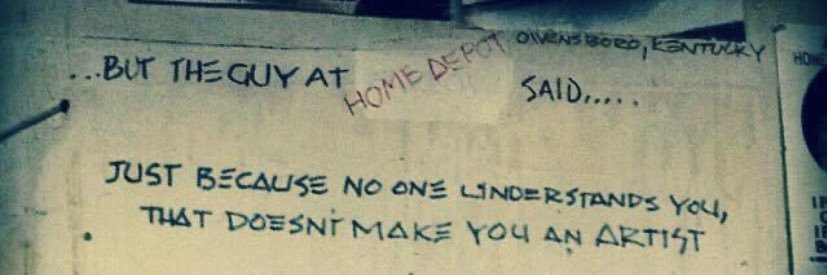 OWENSBORO, KENTUCKY
...BUT THE GUY AT HOME DEPOT SAID.....
JUST BECAUSE NO ONE UNDERSTANDS YOU,
THAT DOESN'T MAKE YOU AN ARTIST